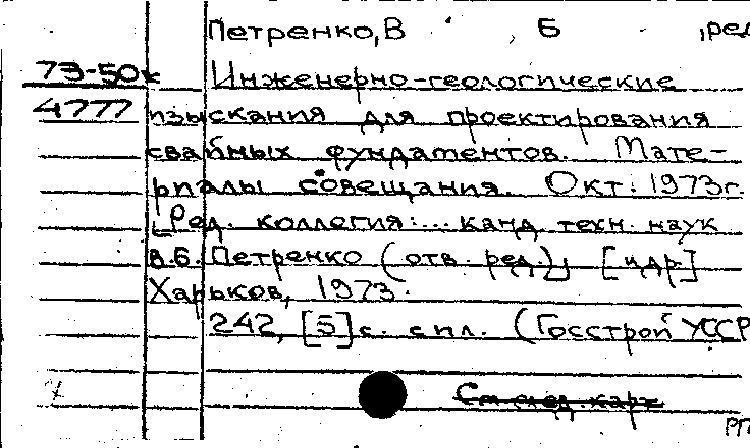 Петренко, В Б , ред
73-50к Инженерно-геологические
4777 изыскания для проектирования
свайных фундаментов. Мате-
риалы совещания. Окт. 1973г.
[Ред. коллегия:... канд. техн. наук
В.Б. Петренко (отв. ред.)] [и др.]
Харьков, 1973.
242, [5] с. с ил. (Госстрой УССР
См след. карт
РП